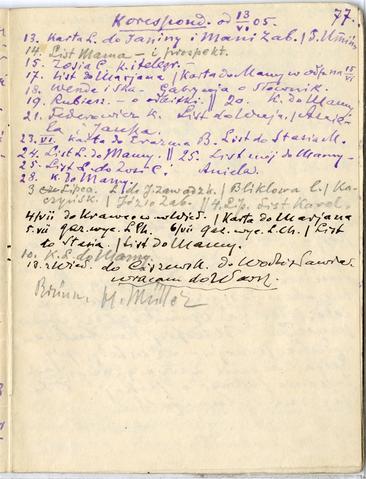 Korespond. od 13/VI 05. 77.
13. Karta L. do Janiny i Mani Zab. /
14. List Mama – i prospekt.
15. Zosia C. k. i telegr.
17. List do Marjana / Karta do Mamy w odp na 15/VI
18. Wende i Ska – Gabryela o Słownik.
19. Rubiesz. – o || 20. k. do Mamy
21. Federowicz k. List do
la i Janka.
23.VI. Karta do Erazma B. List do Stasia M.
24. List L. do Mamy. || 25. List mój do Mamy –
25. List L. do Zosi C. Aniela.
28. K. do Mamy
3 Lipca. L. do J. Zawodz. / Bliklowa L. / Ka-
czyńsk. / Józio Zab. || 4. Lip. List Karol.
4/VII do / Karta do Marjana
5.VII gaz. wyc. L. Ch. 6/VII gaz. wyc. L. Ch. / List
do Stasia / List do Mamy.
10. K. L. do Mamy.
18. z Wied. do do Włodzisławia
wracam do Warsz.
Brünn H. Müller